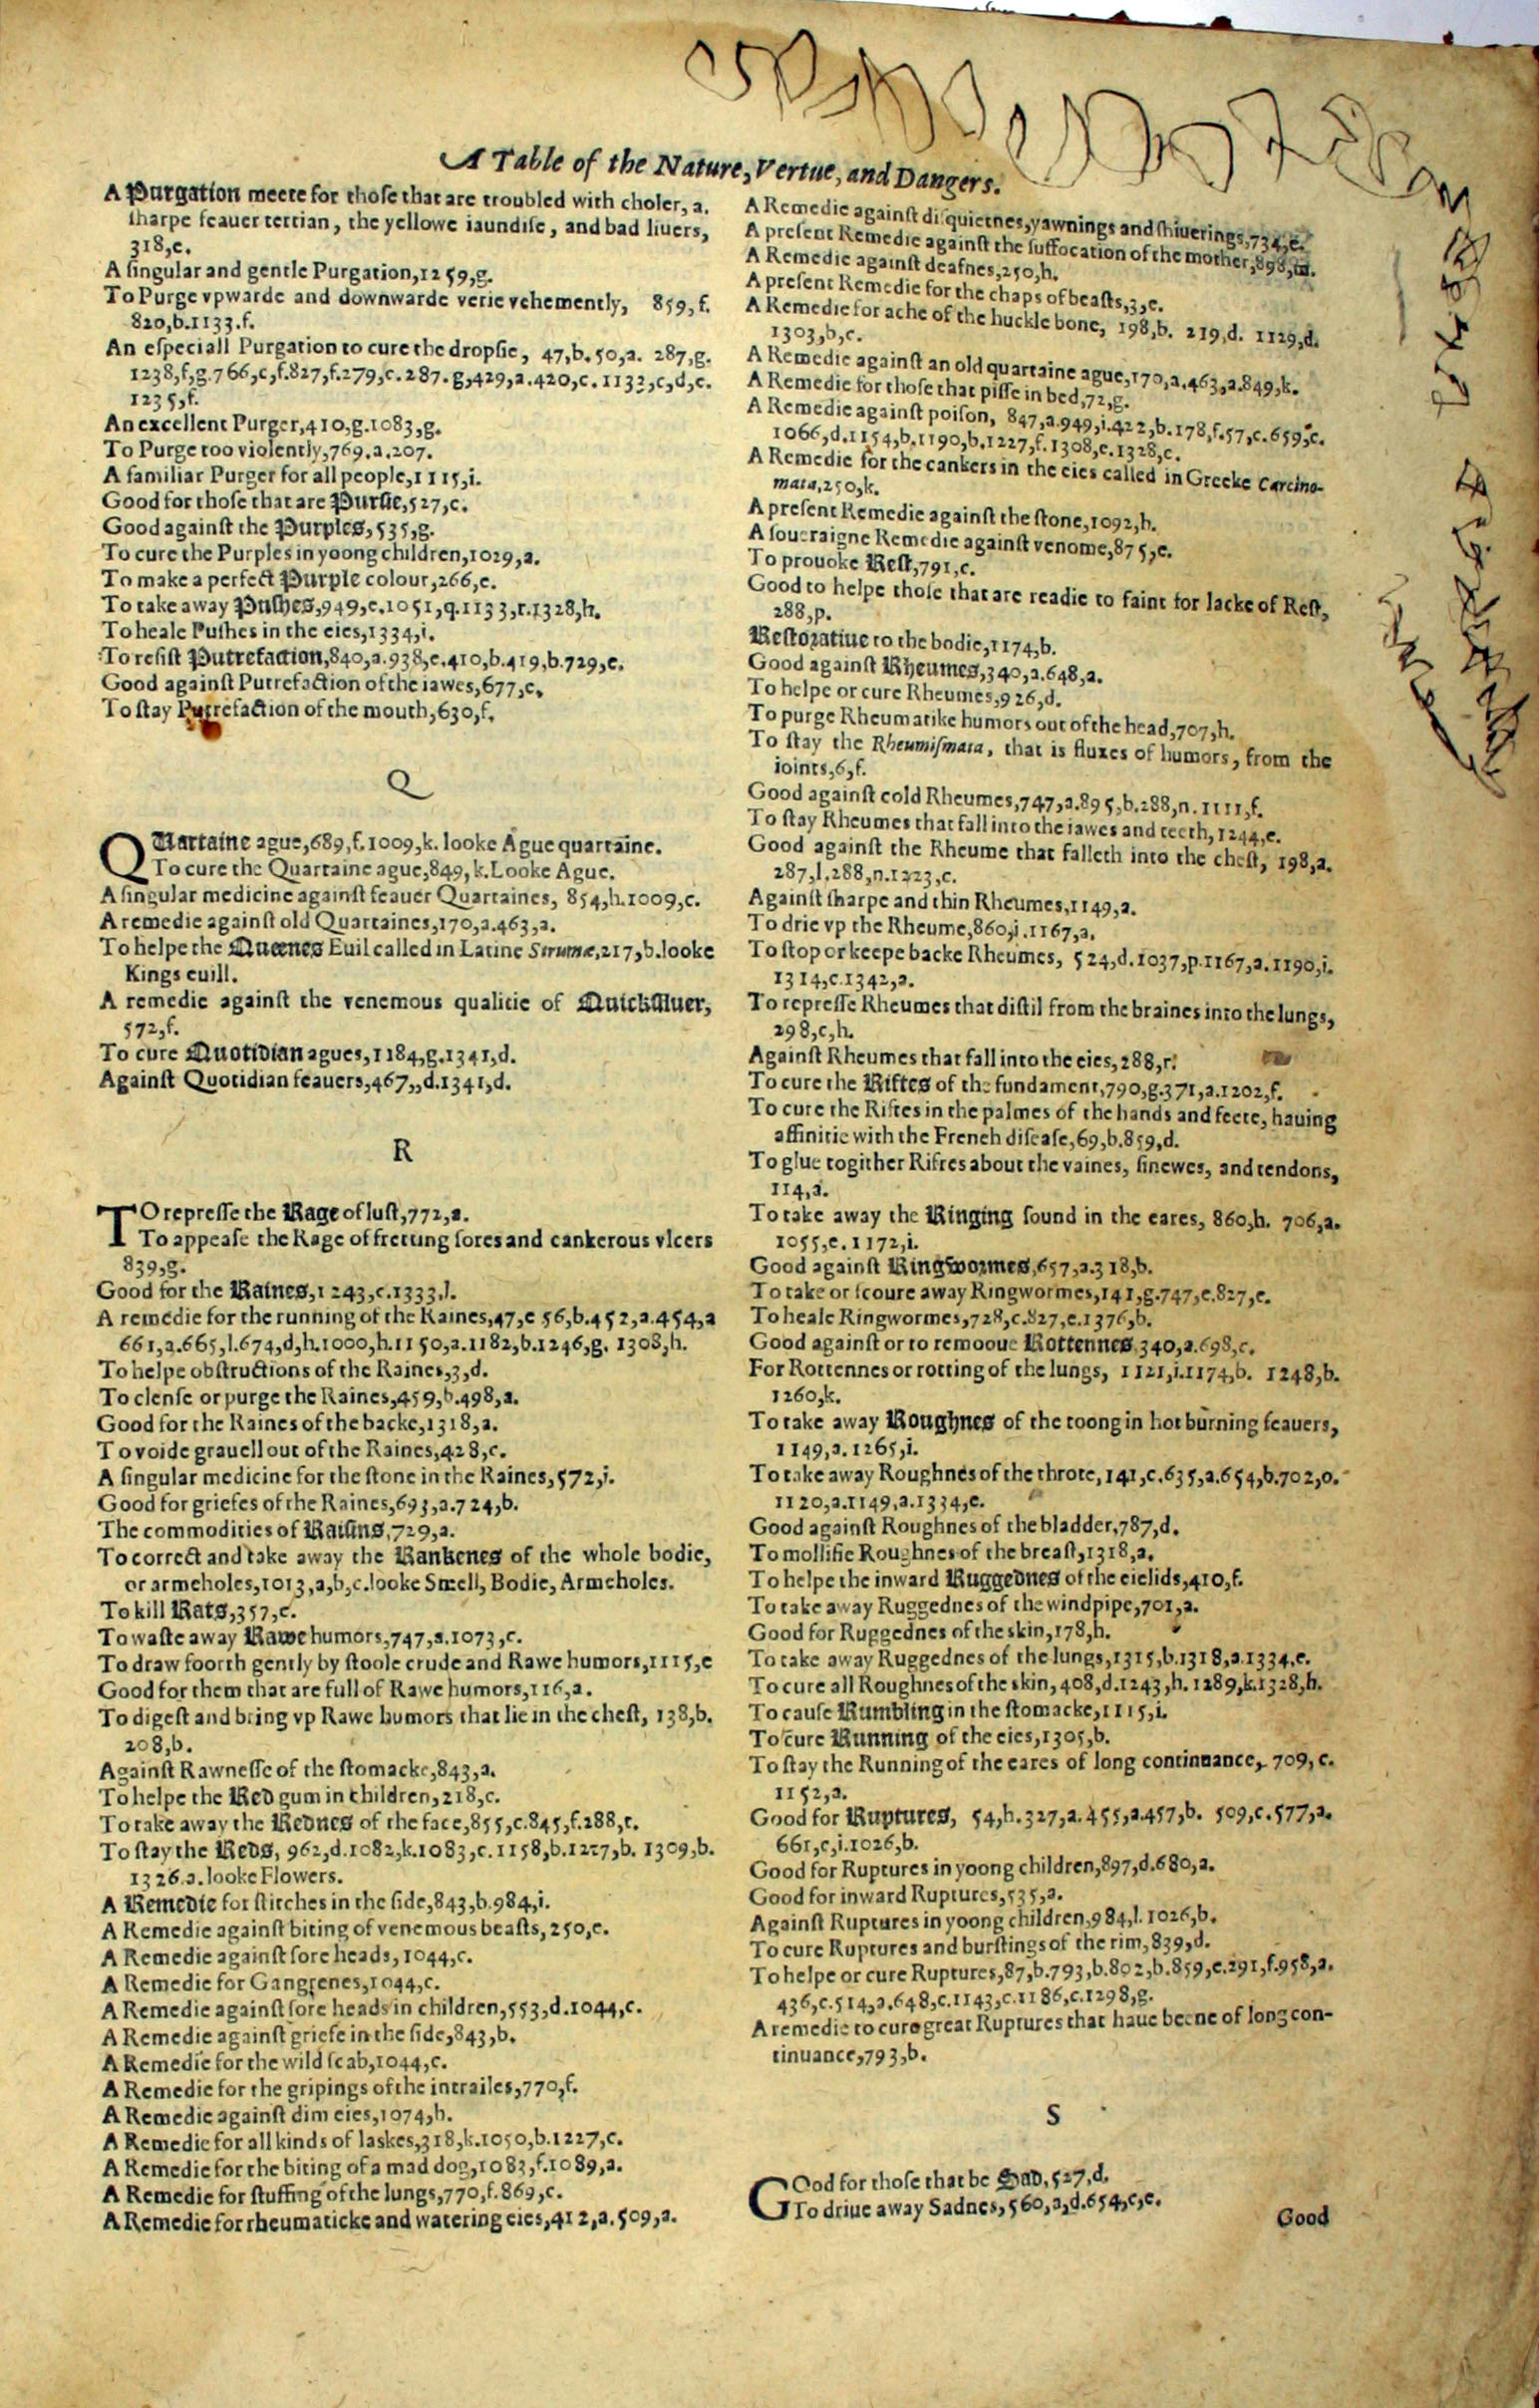 A Table of the Nature, Vertue, and Dangers.
A Purgation meete for those that are troubled with choler, a.
sharpe feauer tertian, the yellowe iaundise, and bad liuers,
318,e.
A singular and gentle Purgation,1259,g.
To Purge vpwarde and downwarde verie vehemently, 859,f.
820,b.1133.f.
An especiall Purgation to cure the dropsie, 47,b.50,a. 287,g.
1238,f,g.766,c,f.827,f.279,c.287.g,429,a.420,c.1133,c,d,c.
1235,f.
An excellent Purger,410,g.1083,g.
To Purge too violently,769.a.207.
A familiar Purger for all people,1115,i.
Good for those that are Pursie,527,c.
Good against the Purples,535,g.
To cure the Purples in yoong children,1029,a.
To make a perfect Purple colour,266,e.
To take away Pushes,949,e.1051,q.1133,r.1328,h.
To heale Pushes in the eies,1334,i.
To resist Putrefaction,840,a.938,e.410,b.419,b.729,e.
Good against Putrefaction of the iawes,677,c.
To stay Putrefaction of the mouth,630,f.
Q
QUartaine ague,689,f.1009,k. looke Ague quartaine.
To cure the Quartaine ague,849,k.Looke Ague.
A singular medicine against feauer Quartaines, 854,h.1009,c.
A remedie against old Quartaines,170,a.463,a.
To helpe the Queenes Euil called in Latine Strumæ,217,b.looke
Kings euill.
A remedie against the venemous qualitie of Quicksiluer,
572,f.
To cure Quotidian agues,1184,g.1341,d.
Against Quotidian feauers,467,,d.1341,d.
R
TO represse the Rage of lust,772,a.
To appease the Rage of fretting sores and cankerous vlcers
839,g.
Good for the Raines,1243,c.1333,l.
A remedie for the running of the Raines,47,e.56,b.452,a.454,a
661,a.665,l.674,d,h.1000,h.1150,a.1182,b.1246,g. 1308,h.
To helpe obstructions of the Raines,3,d.
To clense or purge the Raines,459,b.498,a.
Good for the Raines of the backe,1318,a.
To voide grauell out of the Raines,428,c.
A singular medicine for the stone in the Raines,572,i.
Good for griefes of the Raines,693,a.724,b.
The commodities of Raisins,729,a.
To correct and take away the Rankenes of the whole bodie,
or armeholes,1013,a,b,c.looke Smell, Bodie, Armeholes.
To kill Rats,357,c.
To waste away Rawe humors,747,a.1073,c.
To draw foorth gently by stoole crude and Rawe humors,1115,e
Good for them that are full of Rawe humors,116,a.
To digest and bring vp Rawe humors that lie in the chest, 138,b.
208,b.
Against Rawnesse of the stomacke,843,a.
To helpe the Red gum in children,218,c.
To take away the Rednes of the face,855,c.845,f.288,t.
To stay the Reds, 962,d.1082,k.1083,c.1158,b.1227,b. 1309,b.
1326.a.looke Flowers.
A Remedie for stitches in the side,843,b.984,i.
A Remedie against biting of venemous beasts,250,e.
A Remedie against sore heads,1044,c.
A Remedie for Gangrenes,1044,c.
A Remedie against sore heads in children,553,d.1044,c.
A Remedie against griefe in the side,843,b.
A Remedie for the wild scab,1044,c.
A Remedie for the gripings of the intrailes,770,f.
A Remedie against dim eies,1074,h.
A Remedie for all kinds of laskes,318,k.1050,b.1227,c.
A Remedie for the biting of a mad dog,1083,f.1089,a.
A Remedie for stuffing of the lungs,770,f.869,c.
A Remedie for rheumaticke and watering eies,412,a.509,a.
A Remedie against disquietnes,yawnings and shiuerings,734,e.
A present Remedie against the suffocation of the mother,898,m.
A Remedie against deafnes,250,h.
A present Remedie for the chaps of beasts,3,e.
A Remedie for ache of the huckle bone, 198,b. 219,d. 1129,d.
1303,b,c.
A Remedie against an old quartaine ague,170,a.463,a.849,k.
A Remedie for those that pisse in bed,72,g.
A Remedie against poison, 847,a.949,i.422,b.178,f.57,c.659,c.
1066,d.1154,b.1190,b.1227,f.1308,e.1328,c.
A Remedie for the cankers in the eies called in Greeke Carcino-
mata,250,k.
A present Remedie against the stone,1092,h.
A soueraigne Remedie against venome,875,e.
To prouoke Rest,791,c.
Good to helpe those that are readie to faint for lacke of Rest,
288,p.
Restoratiue to the bodie,1174,b.
Good against Rheumes,340,a.648,a.
To helpe or cure Rheumes,926,d.
To purge Rheumatike humors out of the head,707,h.
To stay the Rheumismata, that is fluxes of humors, from the
ioints,6,f.
Good against cold Rheumes,747,a.895,b.288,n.1111,f.
To stay Rheumes that fall into the iawes and teeth,1244,e.
Good against the Rheume that falleth into the chest, 198,a.
287,l.288,n.1223,c.
Against sharpe and thin Rheumes,1149,a.
To drie vp the Rheume,860,i.1167,a.
To stop or keepe backe Rheumes, 524,d.1037,p.1167,a.1190,i.
1314,c.1342,a.
To represse Rheumes that distil from the braines into the lungs,
298,c,h.
Against Rheumes that fall into the eies,288,r.
To cure the Riftes of the fundament,790,g.371,a.1202,f.
To cure the Riftes in the palmes of the hands and feete, hauing
affinitie with the French disease,69,b.859,d.
To glue togither Riftes about the vaines, sinewes, and tendons,
114,a.
To take away the Ringing sound in the eares, 860,h. 706,a.
1055,e.1172,i.
Good against Ringwormes,657,a.318,b.
To take or scoure away Ringwormes,141,g.747,e.827,e.
To heale Ringwormes,728,c.827,e.1376,b.
Good against or to remooue Rottennes,340,a.698,c.
For Rottennes or rotting of the lungs, 1121,i.1174,b. 1248,b.
1260,k.
To take away Roughnes of the toong in hot burning feauers,
1149,a.1265,i.
To take away Roughnes of the throte,141,c.635,a.654,b.702,o.
1120,a.1149,a.1334,e.
Good against Roughnes of the bladder,787,d.
To mollifie Roughnes of the breast,1318,a.
To helpe the inward Ruggednes of the eielids,410,f.
To take away Ruggednes of the windpipe,701,a.
Good for Ruggednes of the skin,178,h.
To take away Ruggednes of the lungs,1315,b.1318,a.1334,e.
To cure all Roughnes of the skin,408,d.1243,h.1289,k.1328,h.
To cause Rumbling in the stomacke,1115,i.
To cure Running of the eies,1305,b.
To stay the Running of the eares of long continuance, 709,c.
1152,a.
Good for Ruptures, 54,h.327,a.455,a.457,b. 509,c.577,a.
661,c,i.1026,b.
Good for Ruptures in yoong children,897,d.680,a.
Good for inward Ruptures,535,a.
Against Ruptures in yoong children,984,l.1026,b.
To cure Ruptures and burstings of the rim,839,d.
To helpe or cure Ruptures,87,b.793,b.802,b.859,e.291,f.958,a.
436,c.514,a.648,c.1143,c.1186,c.1298,g.
A remedie to cure great Ruptures that haue beene of long con-
tinuance,793,b.
S
GOod for those that be Sad,527,d.
To driue away Sadnes,560,a,d.654,c,e.
Good